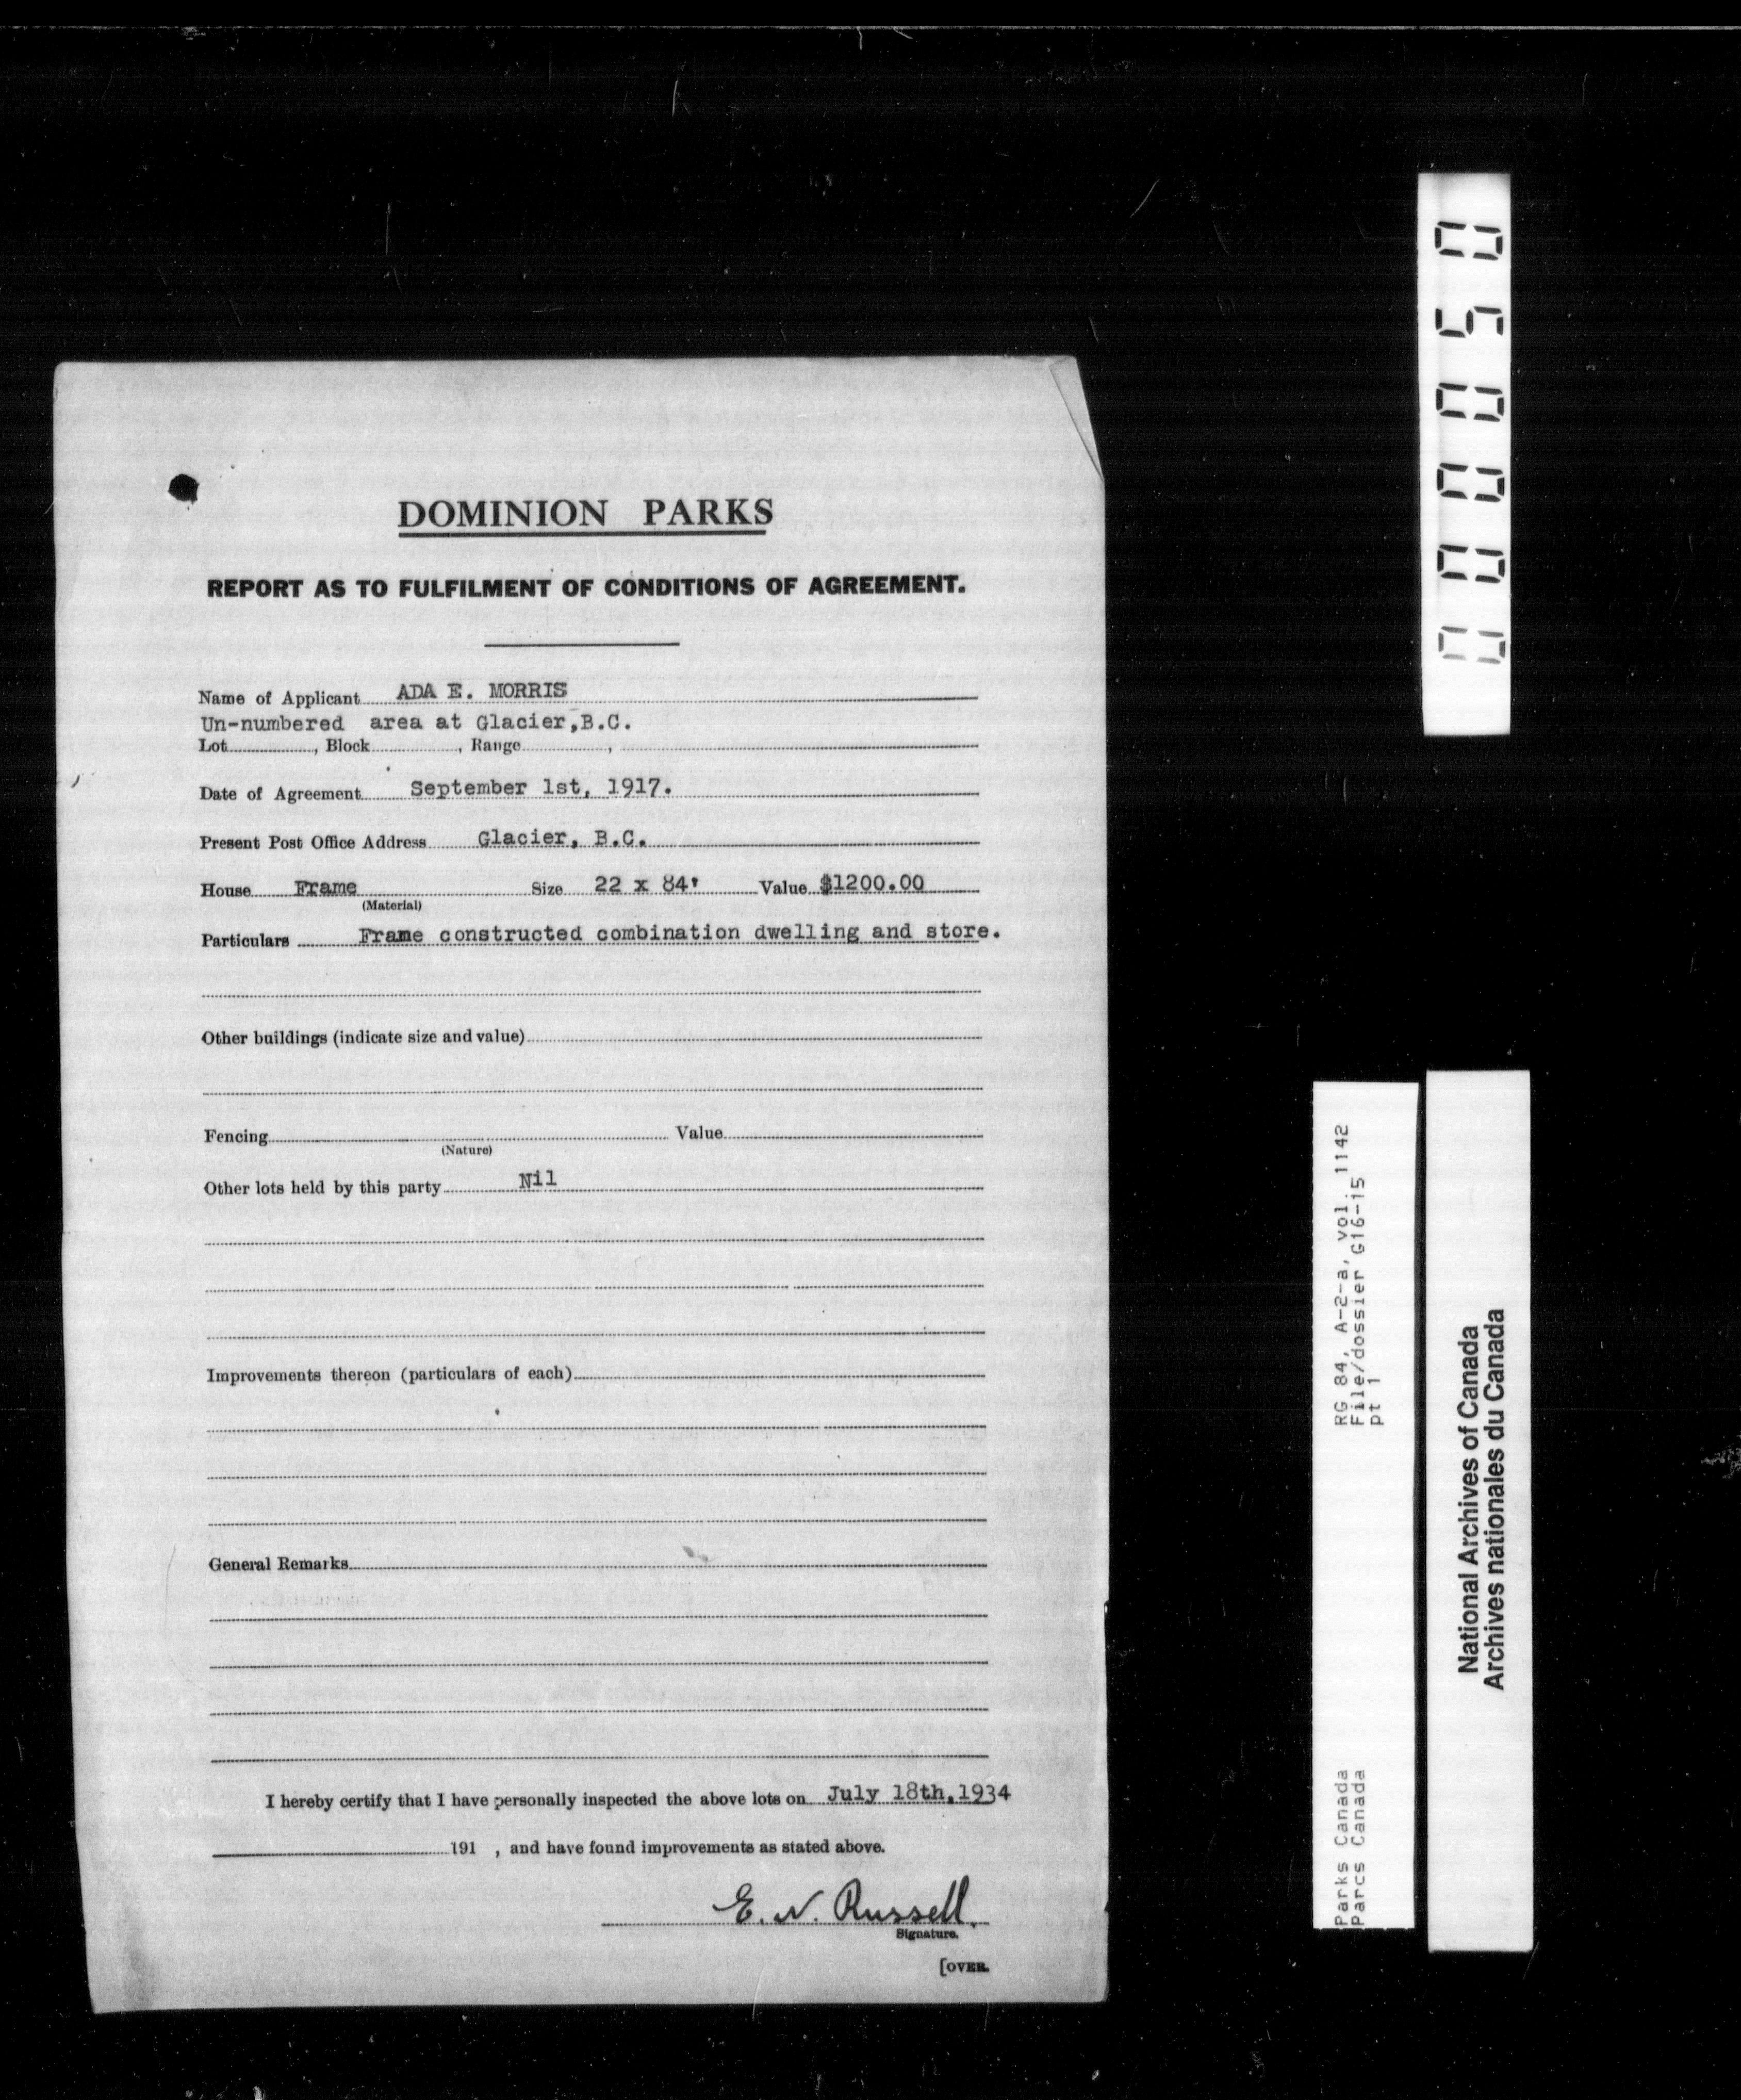 DOMINION PARKS
REPORT AS TO FULFILMENT OF CONDITIONS OF AGREEMENT.
Name of Applicant ADA E. MORRIS
Un-numbered area at Glacier,B.C.
Lot , Block , Range ,
Date of Agreement September 1st, 1917.
Present Post Office Address Glacier, B.C.
House Frame Size 22 x 84' Value $1200.00
(Material)
Particulars Frame constructed combination dwelling and store.
Other buildings (indicate size and value)
Fencing Value
(Nature)
Other lots held by this party Nil
Improvements thereon (particulars of each)
General Remarks
I hereby certify that I have personally inspected the above lots on July 18th,1934
191 , and have found improvements as stated above.
E. N. Russell.
Signature.
[OVER.
000050
RG 84, A-2-a, vol. 1142
File/dossier G16-15
pt 1
Parks Canada
Parcs Canada
National Archives of Canada
Archives nationales du Canada